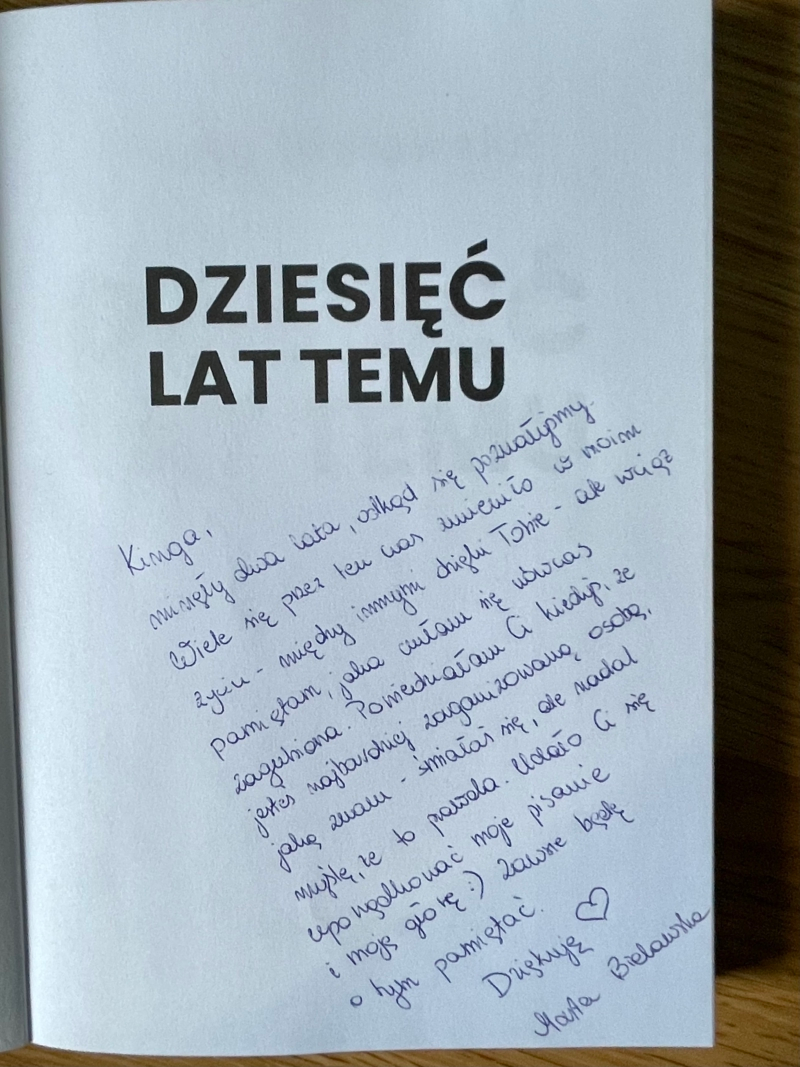 DZIESIĘĆ
LAT TEMU
Kinga,
minęły dwa lata, odkąd się poznałyśmy.
Wiele się przez ten czas zmieniło w moim
życiu - między innymi dzięki Tobie - ale wciąż
pamiętam, jaka czułam się wówczas
zagubiona. Powiedziałam Ci kiedyś, że
jesteś najbardziej zorganizowaną osobą,
jaką znam - śmiałaś się, ale nadal
myślę, że to prawda. Udało Ci się
uporządkować moje pisanie
i moją głowę :) Zawsze będę
o tym pamiętać.
Dziękuję ♡
Marta Bielawska